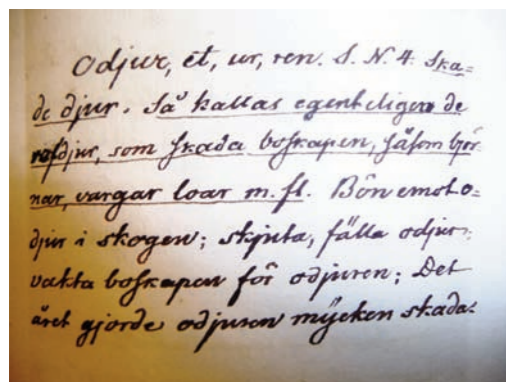 Odjur, et, ur, ren. S. N. 4. Ska-
de djur. Så kallas egenteligen de
rofdjur, som skada boskapen, såsom björ
nar, vargar loar m. fl. Bön emot o-
djur i skogen; skjuta, fälla odjur;
vakta boskapen för odjuren; Det
året gjorde odjuren mycken skada.